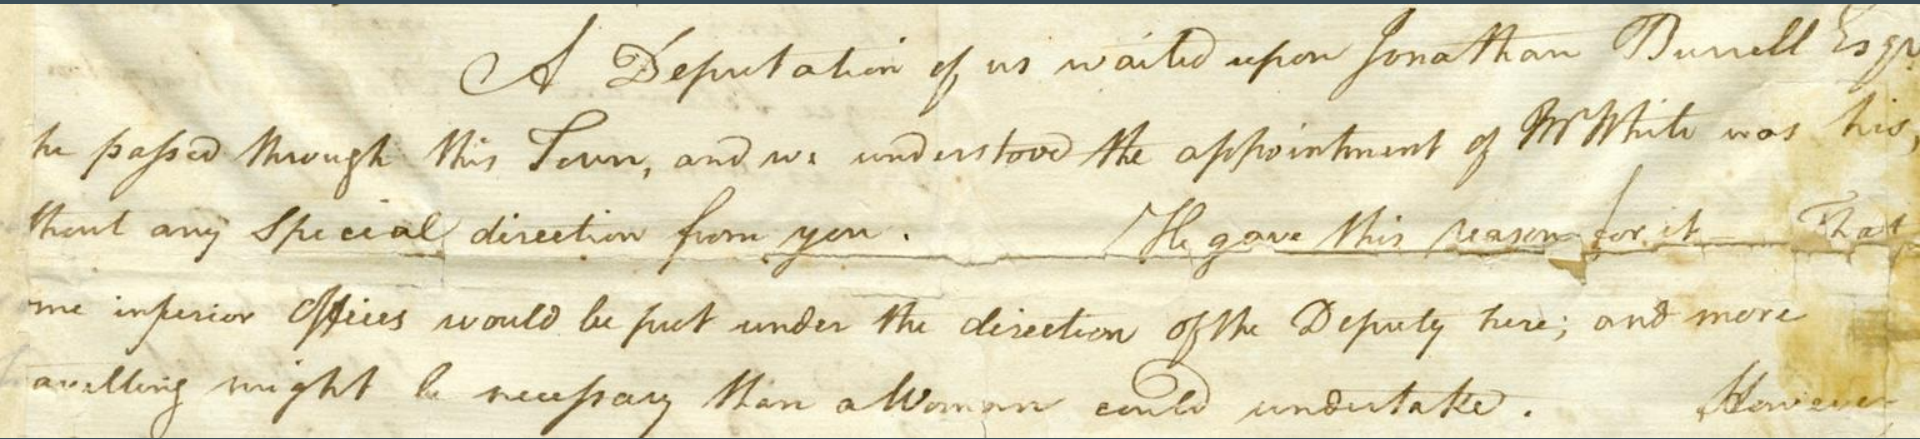 A Deputation of us waited upon Jonathan Burrell Esqr
he passed through this Town, and we understood the appointment of Mr White was his,
thout any Special direction from you. He gave this reason for it — That
me inferior Offices would be put under the direction of the Deputy here; and more
avelling might be necessary than a Woman could undertake. However